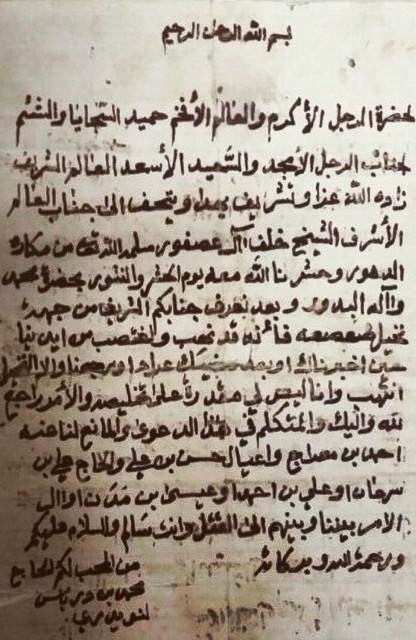 بسم الله الرحمن الرحيم
لحضرة الرجل الأكرم والعالم الأفخم حميد السجايا والشيم
جناب الرجل الأمجد والسعيد الأسعد العالم الشريف
زاده الله عزا وتشريف يهدى ويتحف الى جناب العالم
الأشرف الشيخ خلف آل عصفور سلمه الله تعالى من مكاره
الدهور وحشرنا الله معه يوم الحشر والنشور بحضرة محمد
وآله البدور وبعد نعرف جنابكم الشريف من جهة
نخيل صعصعه فأنه قد نهب واغتصب من ايدينا
حين اخبرناك اوبعد
انتهب وانا ليس لي مقدرة على تخليصه والأمر راجع
لله واليك والمتكلم في هذا الدعوى والمانع لنا عنه
احمد بن معراج واعيال حسن بن علي والحاج علي بن
سرحان او علي بن احمد او عيسى بن
الامر بيننا وبينهم الى القتل وانت سالم والسلام عليكم
ورحمة الله وبركاته
من المحب لكم الحاج
محمد بن